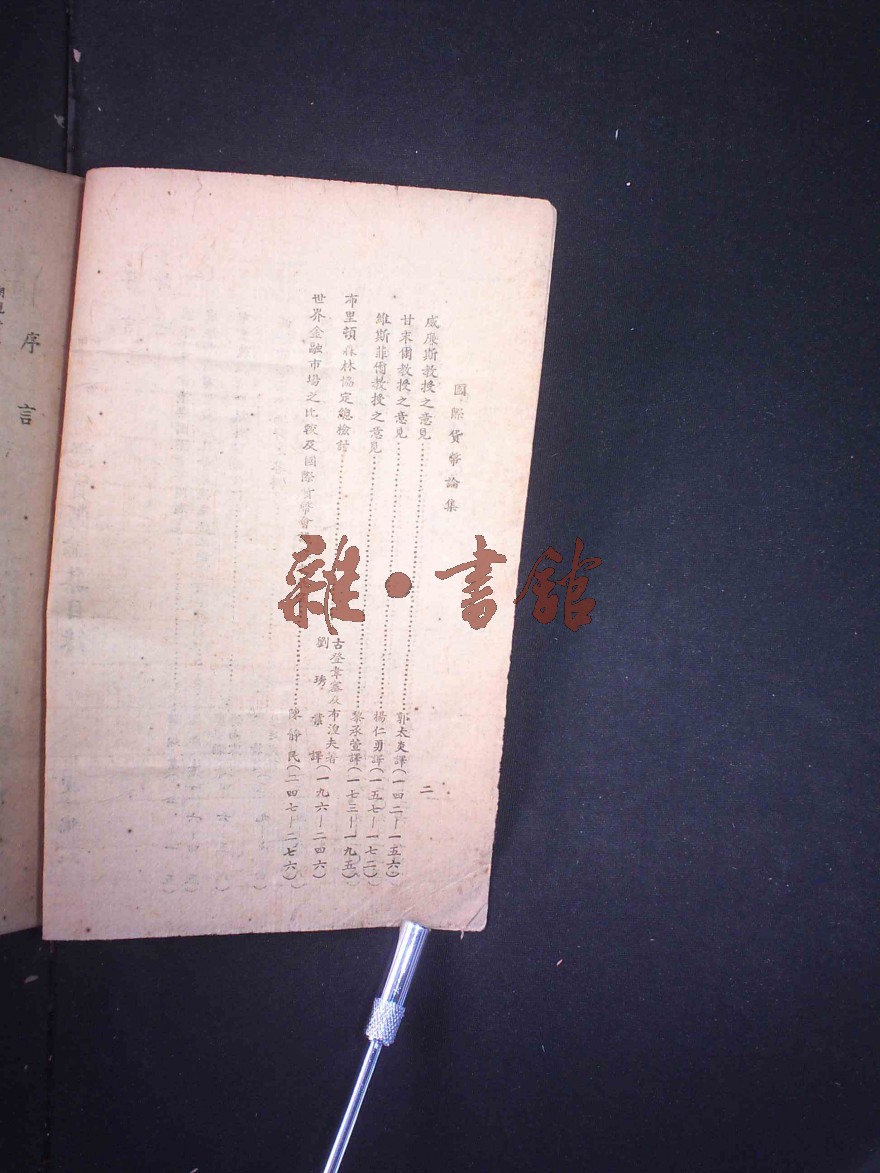 國際貨幣論集
二
威廉斯教授之意見……郭太炎譯(一四二—一五六)
甘末爾教授之意見……楊仁勇譯(一五七—一七二)
維斯菲爾教授之意見……黎承萱譯(一七三—一九五)
布里頓森林協定總檢討……古登韋塞及布湼夫著
劉琇業譯(一九六—二四六)
世界金融市場之比較及國際貨幣會……陳靜民(二四七—二七六)
序言
雜·書館